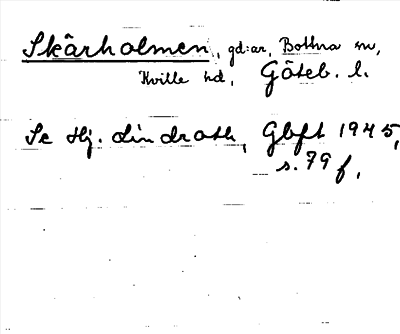 Skärholmen, gd:ar, Bottna sn,
Kville hd, Göteb. l.
Se Hj. Lindroth, Gbft 1945,
s. 79 f.